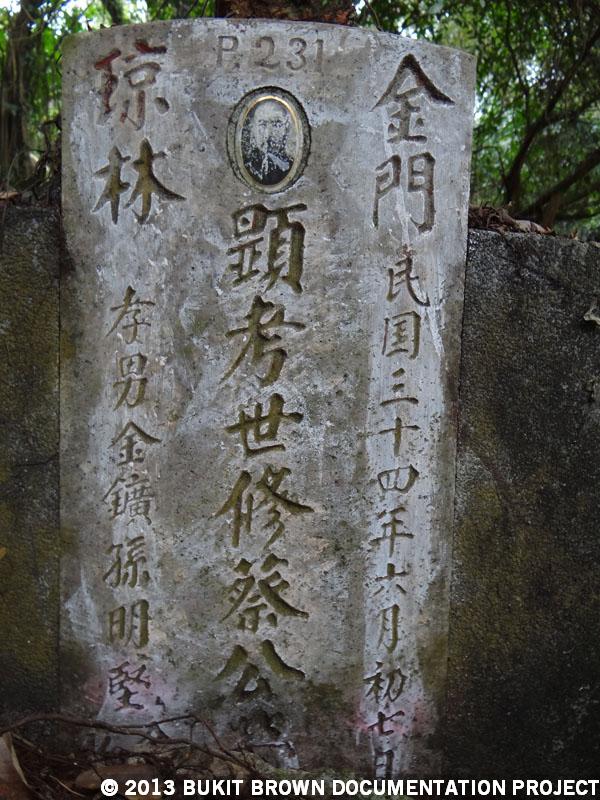 P. 231
金門
民国三十四年六月初七日
顯考世修蔡公
琼林
孝男金鑛孫明堅
© 2013 BUKIT BROWN DOCUMENTATION PROJECT